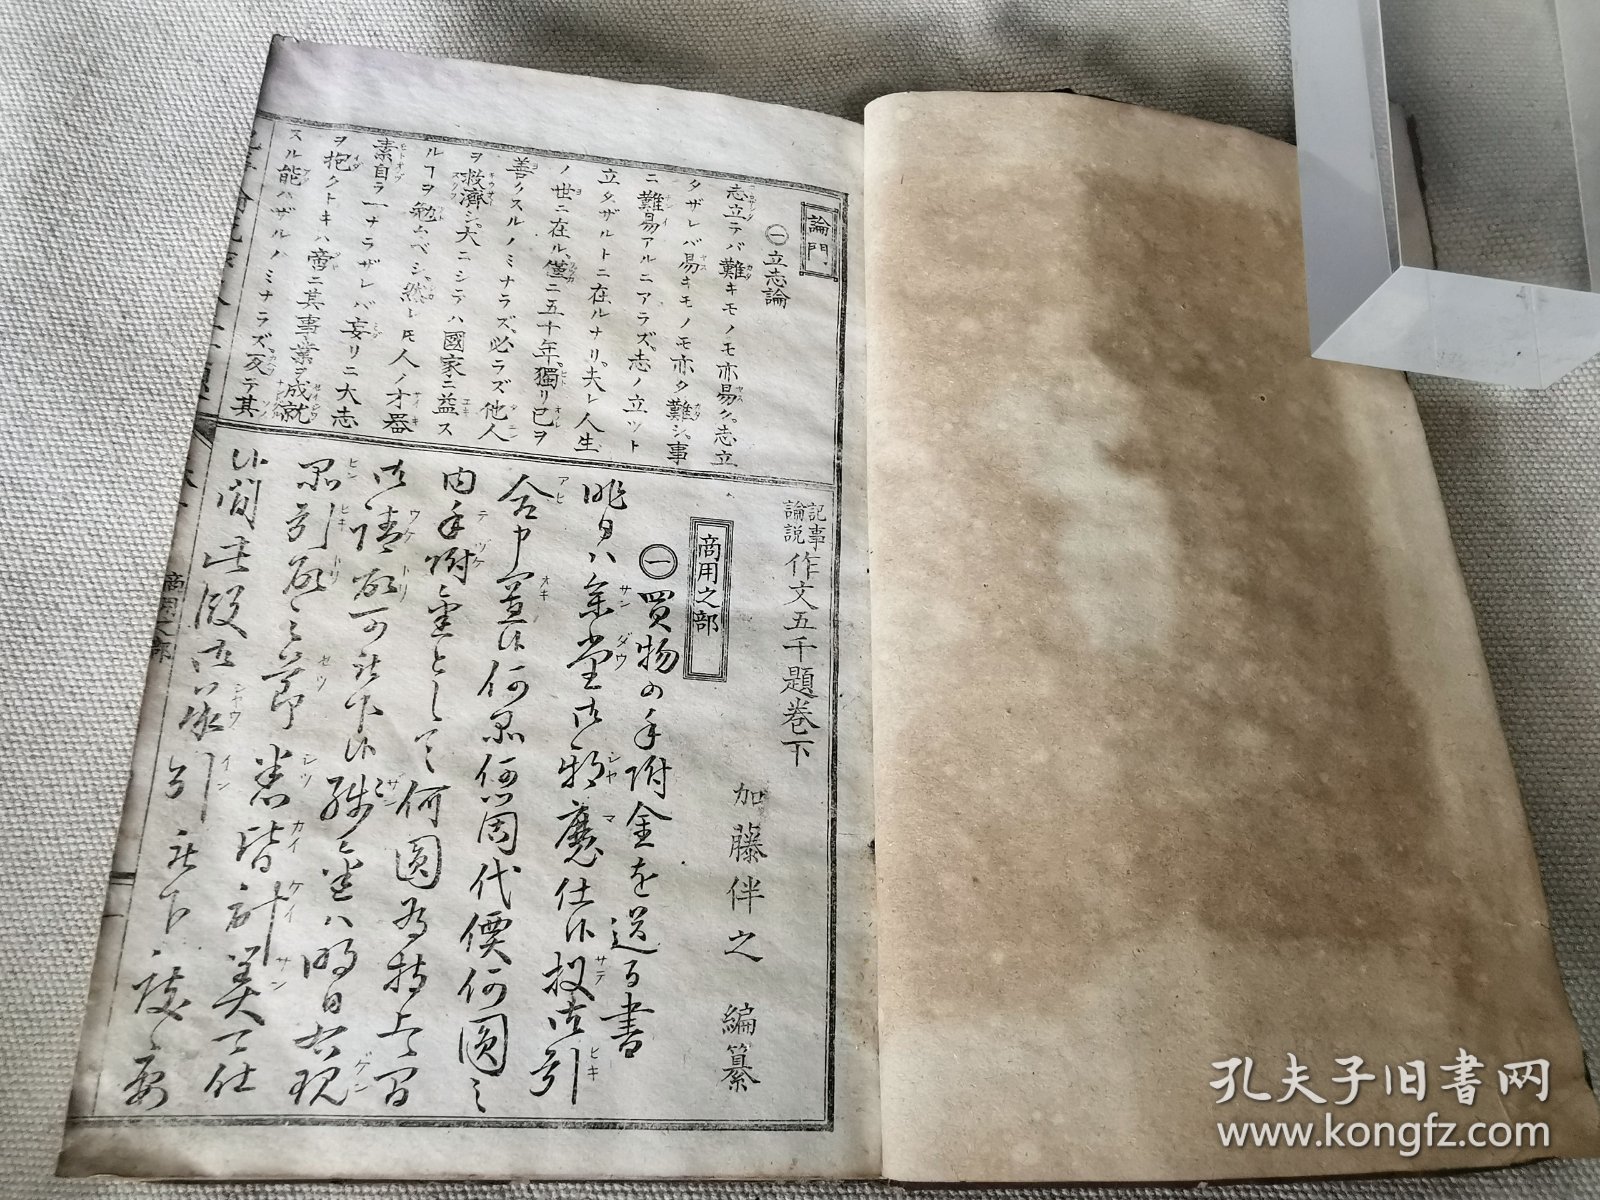 論門
㊀立志論
志立テバ難キモノモ亦易ク。志立
タザレバ易キモノモ亦タ難シ、事
ニ難易アルニアラズ、志ノ立ツト
立タザルトニ在ルナリ。夫レ人生
ノ世ニ在ル、僅ニ五十年。獨リ已ヲ
善クスルノミナラズ、必ラズ他人
ヲ救濟シ、大ニシテハ國家ニ益ス
ルヿヲ勉ムベシ、然レ𪜈人ノ才器
素自ラ一ナラザレバ妄リニ大志
ヲ抱クトキハ啻ニ其事業ヲ成就
スル能ハザルノミナラズ、反テ其
記事論説作文五千題卷下
加藤伴之 編纂
商用之部
㊀買物の手附金を送る書
昨日ハ参堂御邪魔仕候扨御引
合申置候何品何箇代價何圓之
内手附金として何圓為持上候間
御請取可被下候残金ハ明日右現
品引取之節悉皆計算可仕
候間此段御承引被下度候
商用之部
一
孔夫子旧書网
www.kongfz.com